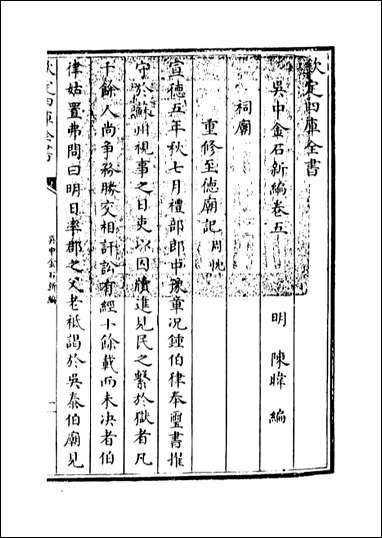 欽定四庫全書
吳中金石新編卷五
明 陳暐 編
祠廟
重修至德廟記 周忱
宣德五年秋七月禮部郎中豫章況鍾伯律奉璽書擢
守於蘇州視事之日吏以囚牘進見民之繫於獄者凡
千餘人尚爭務勝交相訐訟有經十餘載而未決者伯
律姑置弗問曰明日率郡之父老祗謁於吳泰伯廟見
欽定四庫全書
吳中金石新編
一